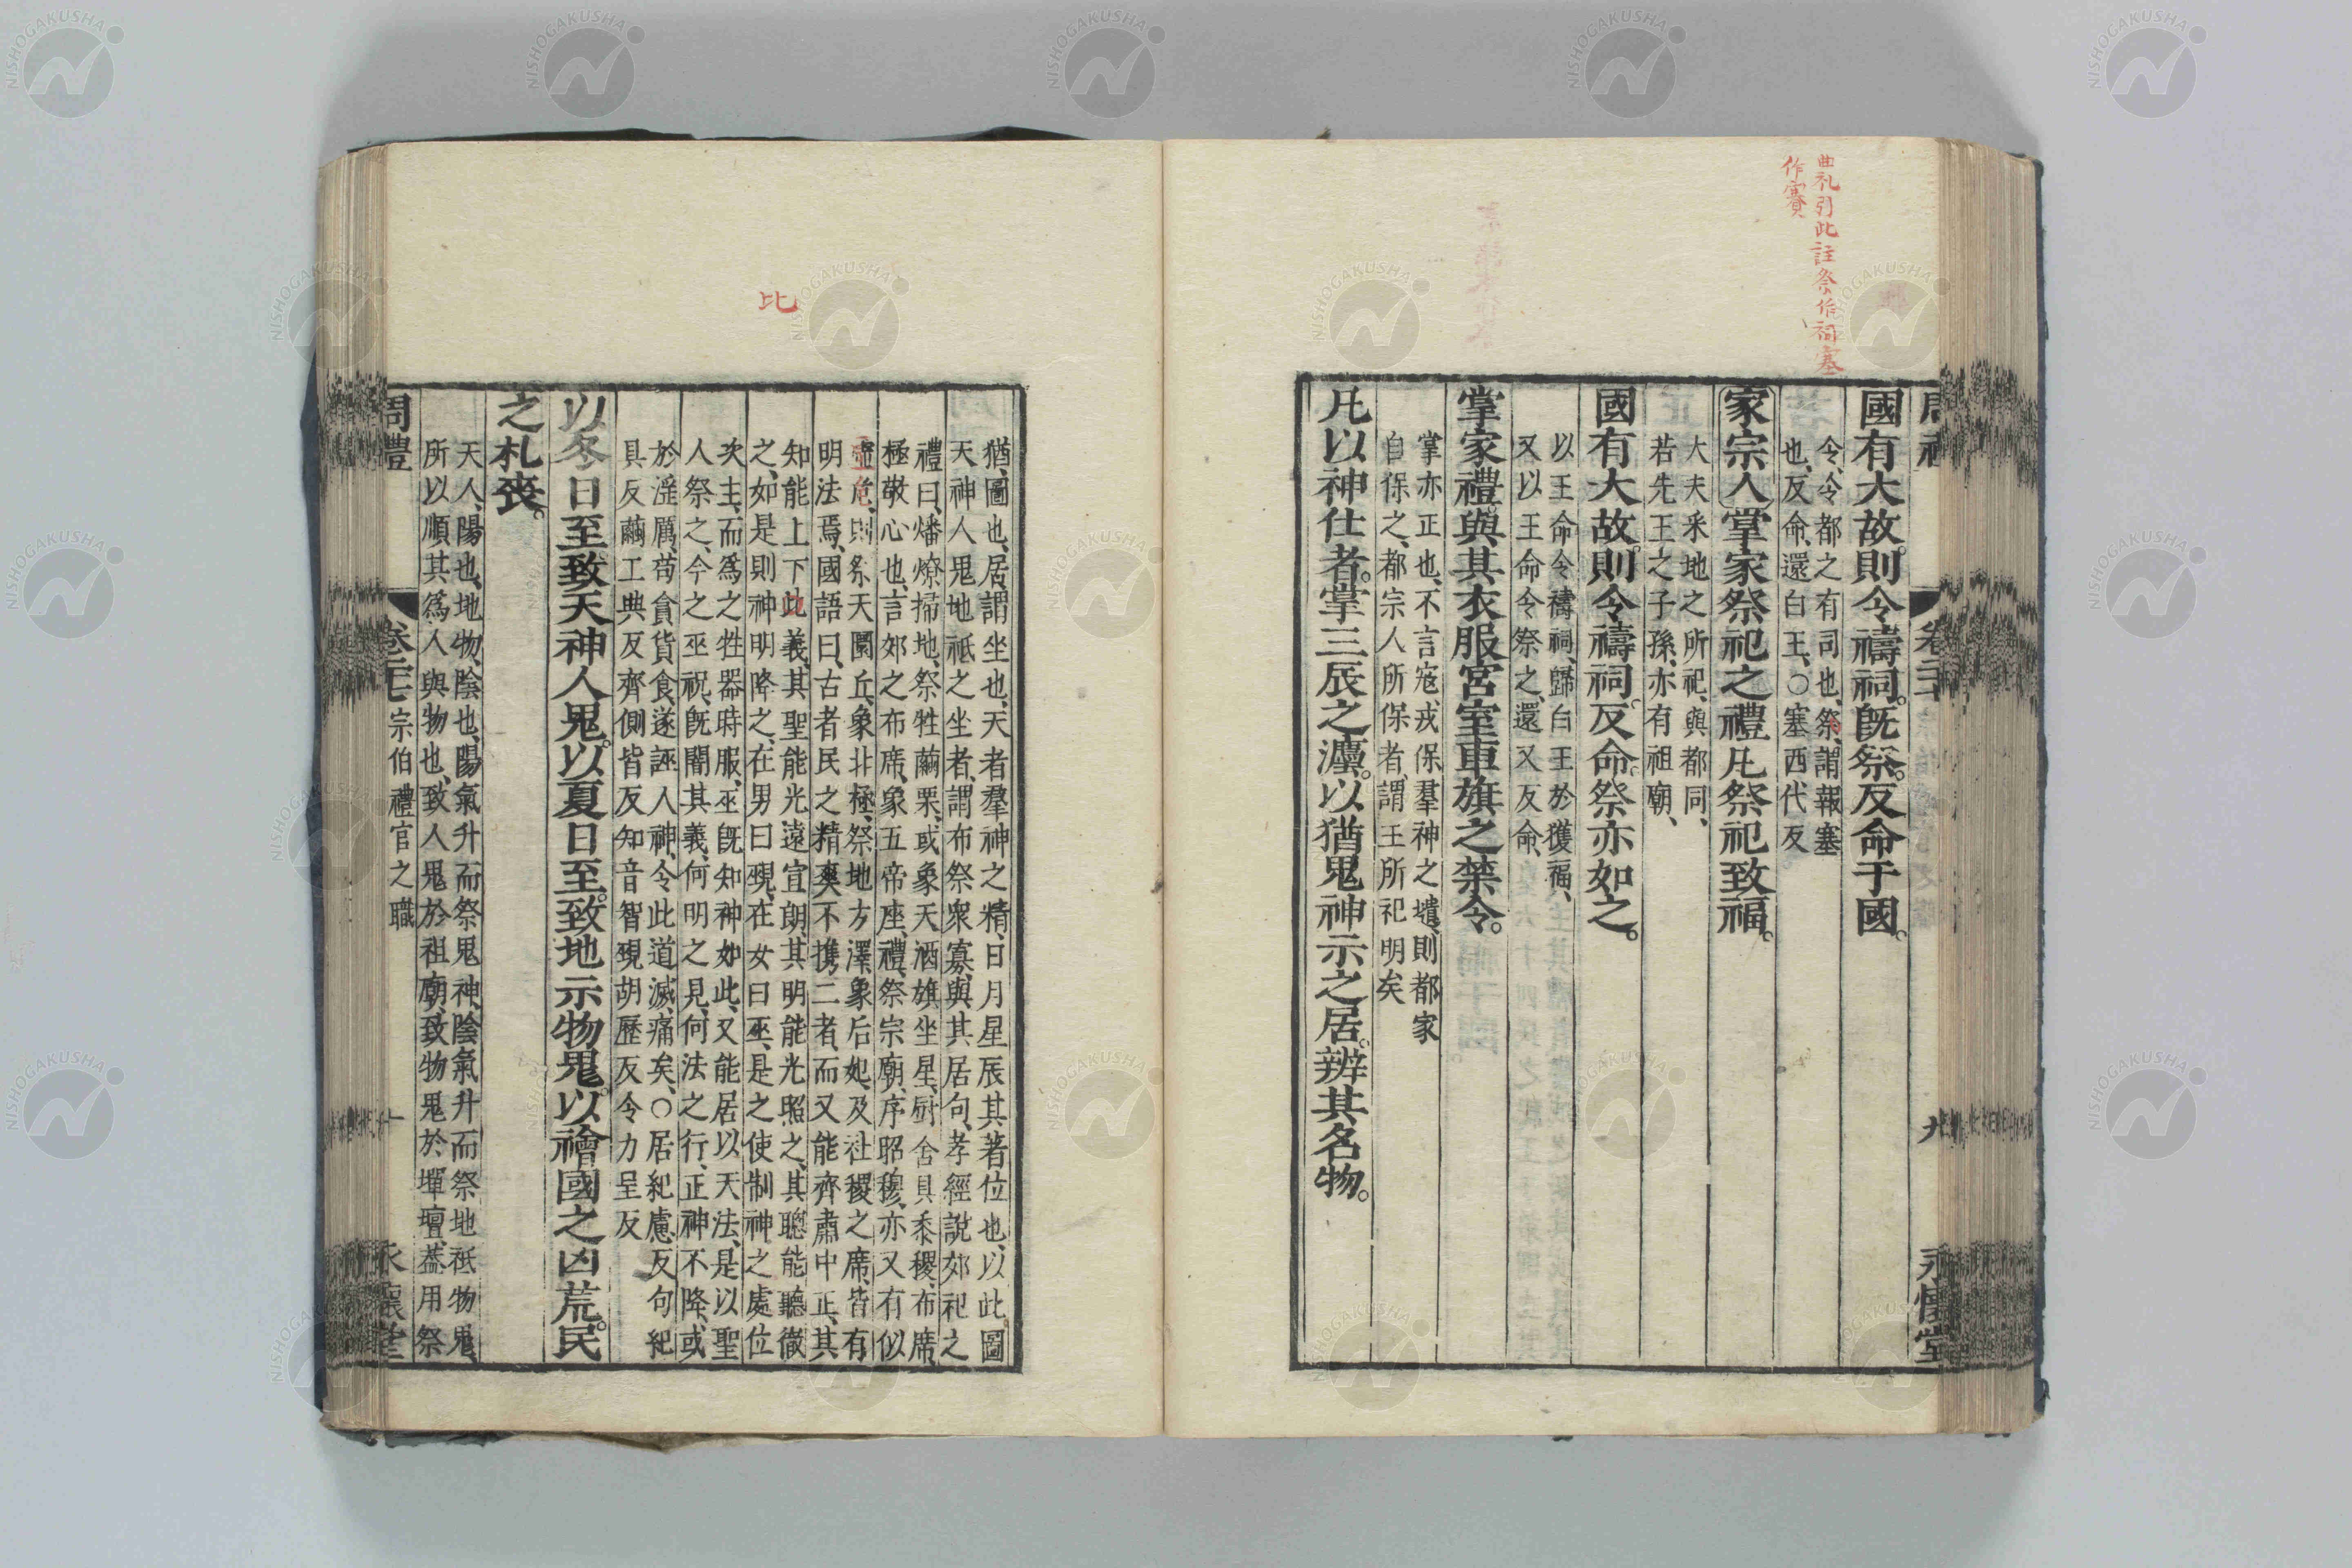 典礼引此註祭作祠塞
作賽
國有大故、則令禱祠。旣祭。反命于國。
令、令都之有司也、祭、謂報塞
也、反命、還白王、○塞西代反
家宗人掌家祭祀之禮凡祭祀致福。
大夫采地之所祀、與都同、
若先王之子孫、亦有祖廟、
國有大故。則令禱祠。反命。祭亦如之。
以王命令禱祠、歸白王於獲福、
又以王命令祭之、還又反命、
掌家禮。與其衣服宮室車旗之禁令。
掌亦正也、不言寇戎保羣神之壝、則都家
自保之、都宗人所保者、謂王所祀明矣
凡以神仕者。掌三辰之灋。以猶鬼神示之居。辨其名物。
九
永懷堂
比
猶、圖也、居、謂坐也、天者羣神之精、日月星辰其著位也、以此圖
天神人鬼地祇之坐者、謂布祭衆寡、與其居句、孝經說郊祀之
禮曰、燔燎掃地、祭牲繭栗、或象天酒旗坐星、厨舍具黍稷、布席、
極敬心也、言郊之布席、象五帝座、禮、祭宗廟、序昭穆、亦又有似
虛危、則祭天圜丘、象北極、祭地方澤、象后妃、及社稷之席、皆有
明法焉、國語曰、古者民之精爽不攜二者、而又能齊肅中正、其
知能上下比義、其聖能光遠宣朗、其明能光照之、其聰能聽徹
之、如是則神明降之、在男曰覡、在女曰巫、是之使制神之處位
次主、而爲之牲器時服、巫旣知神如此、又能居以天法、是以聖
人祭之、今之巫祝、旣闇其義、何明之見、何法之行、正神不降、或
於淫厲、苟貪貨食、遂誣人神、令此道滅、痛矣、○居紀慮反句紀
具反繭工典反齊側皆反知音智覡胡歷反令力呈反
以冬日至致天神人鬼。以夏日至。致地示物鬽。以禬國之凶荒。民
之札喪。
天人、陽也、地物、陰也、陽氣升而祭鬼神、陰氣升而祭地祇物鬽、
所以順其爲人與物也、致人鬼於祖廟、致物鬽於墠壇、蓋用祭
周禮
卷二七 宗伯禮官之職
十
永懷堂